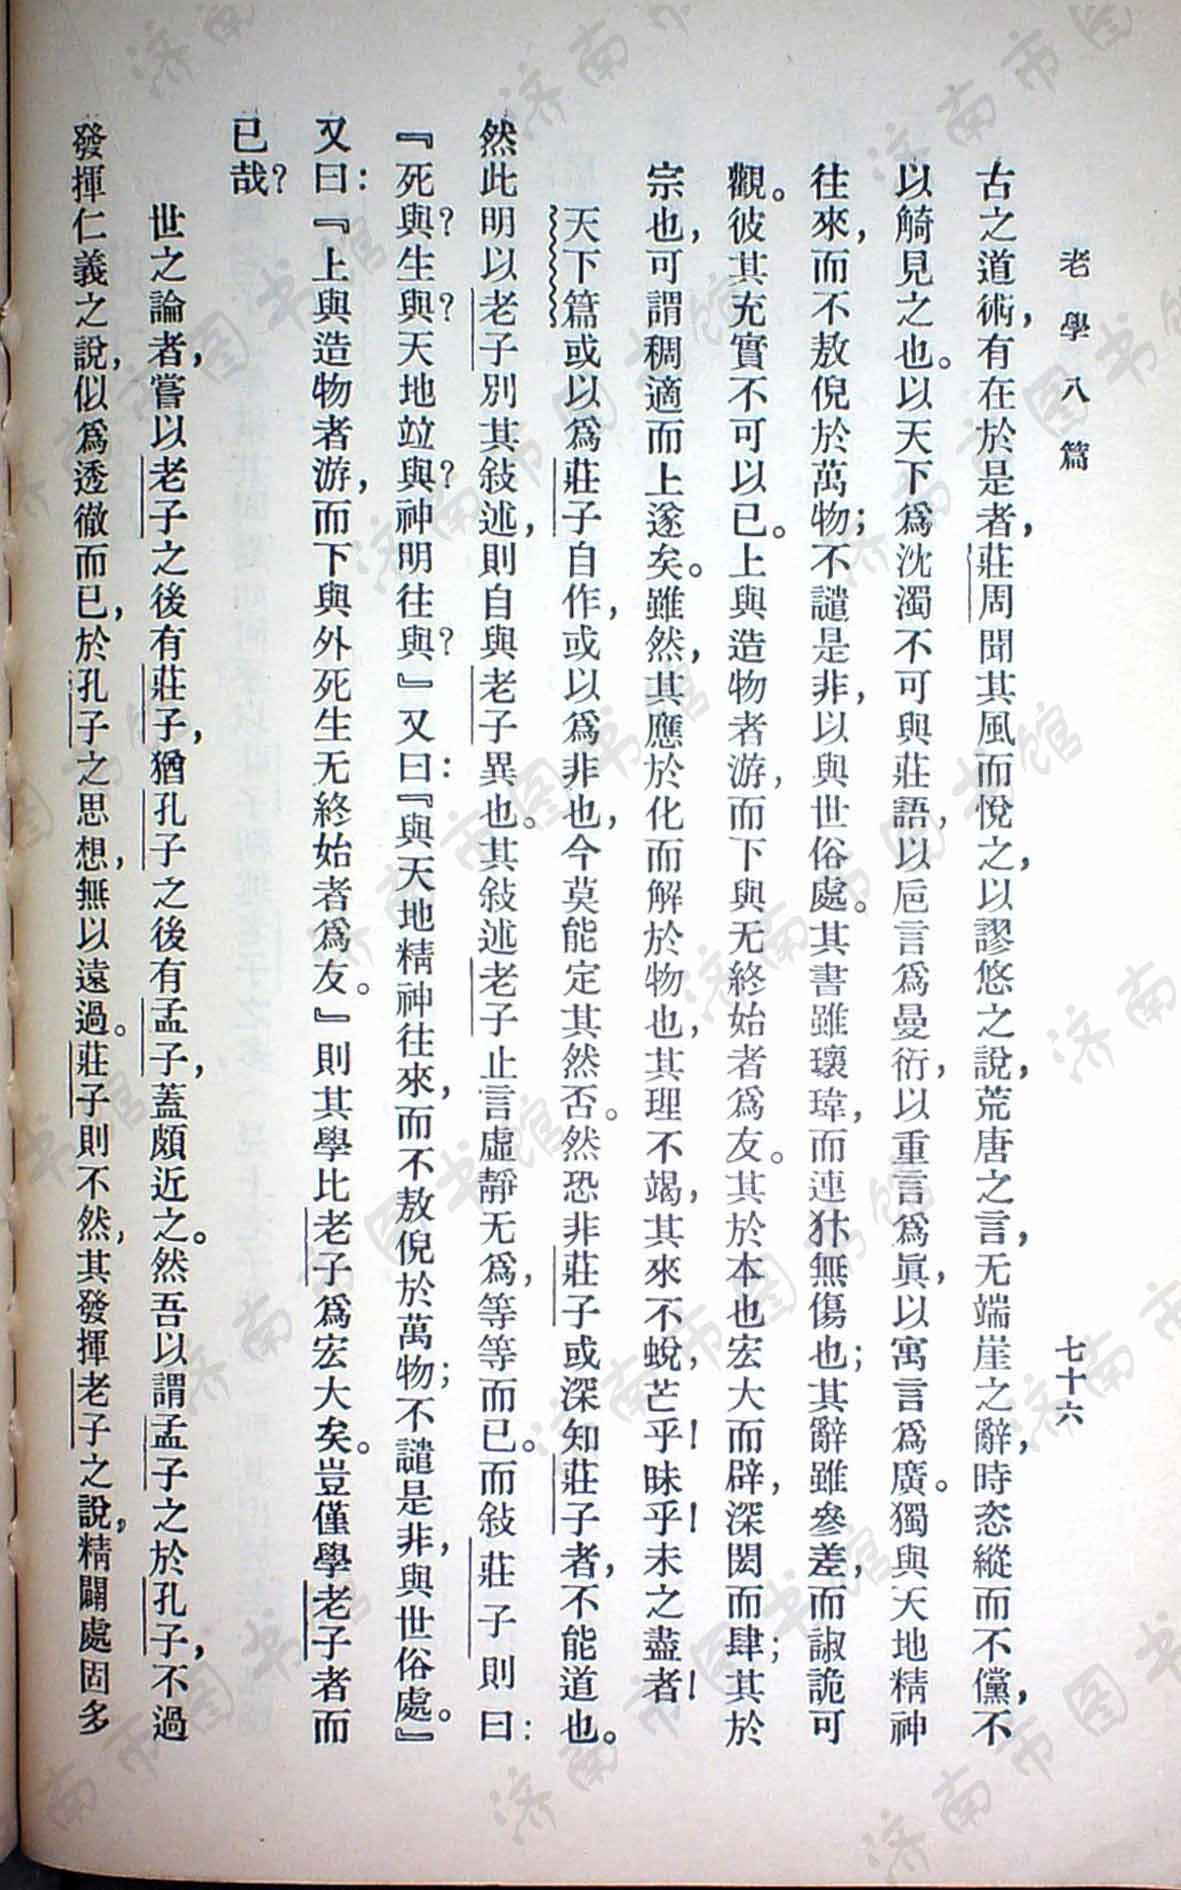 老學八篇
七十六
古之道術，有在於是者，莊周聞其風而悅之，以謬悠之說，荒唐之言，无端崖之辭，時恣縱而不儻，不
以觭見之也。以天下爲沈濁不可與莊語，以巵言爲曼衍，以重言爲眞，以寓言爲廣。獨與天地精神
往來，而不敖倪於萬物；不譴是非，以與世俗處。其書雖瓌瑋，而連犿無傷也；其辭雖參差，而諔詭可
觀。彼其充實不可以已。上與造物者游，而下與无終始者爲友。其於本也宏大而辟，深閎而肆；其於
宗也，可謂稠適而上遂矣。雖然，其應於化而解於物也，其理不竭，其來不蛻，芒乎！昧乎！未之盡者！
天下篇或以爲莊子自作，或以爲非也，今莫能定其然否。然恐非莊子或深知莊子者，不能道也。
然此明以老子別其敍述，則自與老子異也。其敍述老子止言虛靜无爲，等等而已。而敍莊子則曰：
『死與？生與？天地竝與？神明往與？』又曰：『與天地精神往來，而不敖倪於萬物；不譴是非，與世俗處。』
又曰：『上與造物者游，而下與外死生无終始者爲友。』則其學比老子爲宏大矣。豈僅學老子者而
已哉？
世之論者，嘗以老子之後有莊子，猶孔子之後有孟子，蓋頗近之。然吾以謂孟子之於孔子，不過
發揮仁義之說，似爲透徹而已，於孔子之思想，無以遠過。莊子則不然，其發揮老子之說，精闢處固多
济南市图书馆
济南市图书馆
济南市图书馆
济南市图书馆
济南市图书馆
济南市图书馆